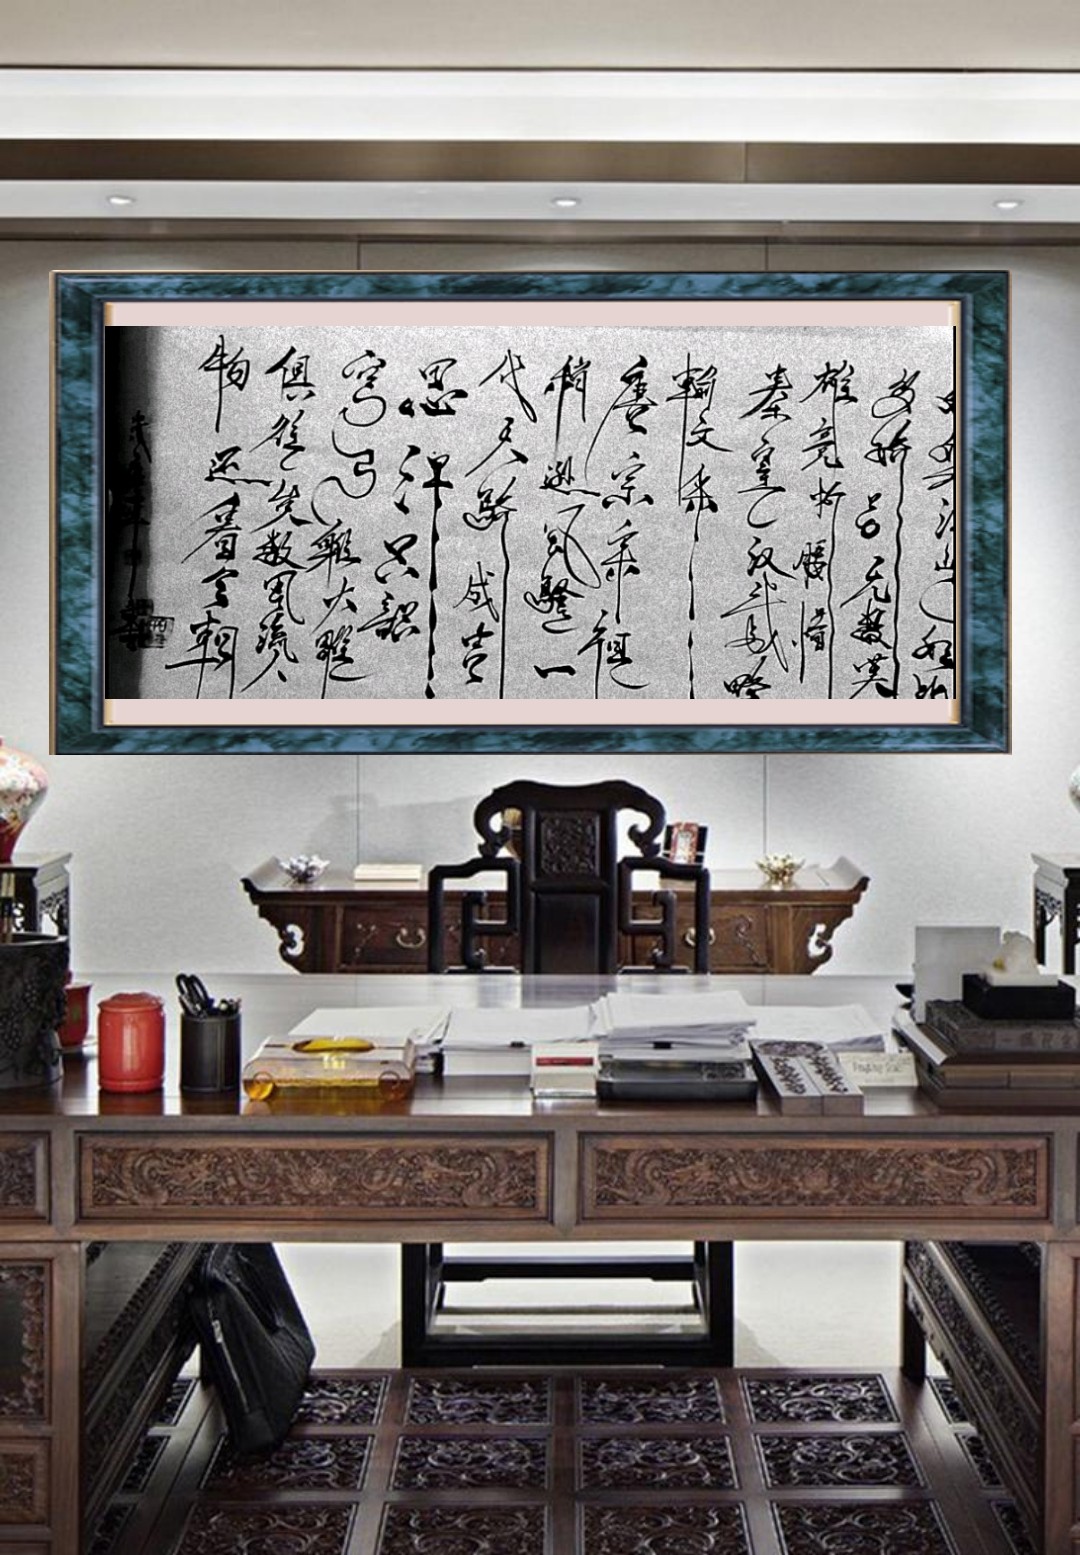 江山如此
多娇引无數英
雄竞折腰惜
秦皇汉武略
輸文采
唐宗宋祖
稍遜風騷一
代天驕成吉
思汗只識
弯弓射大雕
俱往矣數風流人
物还看今朝